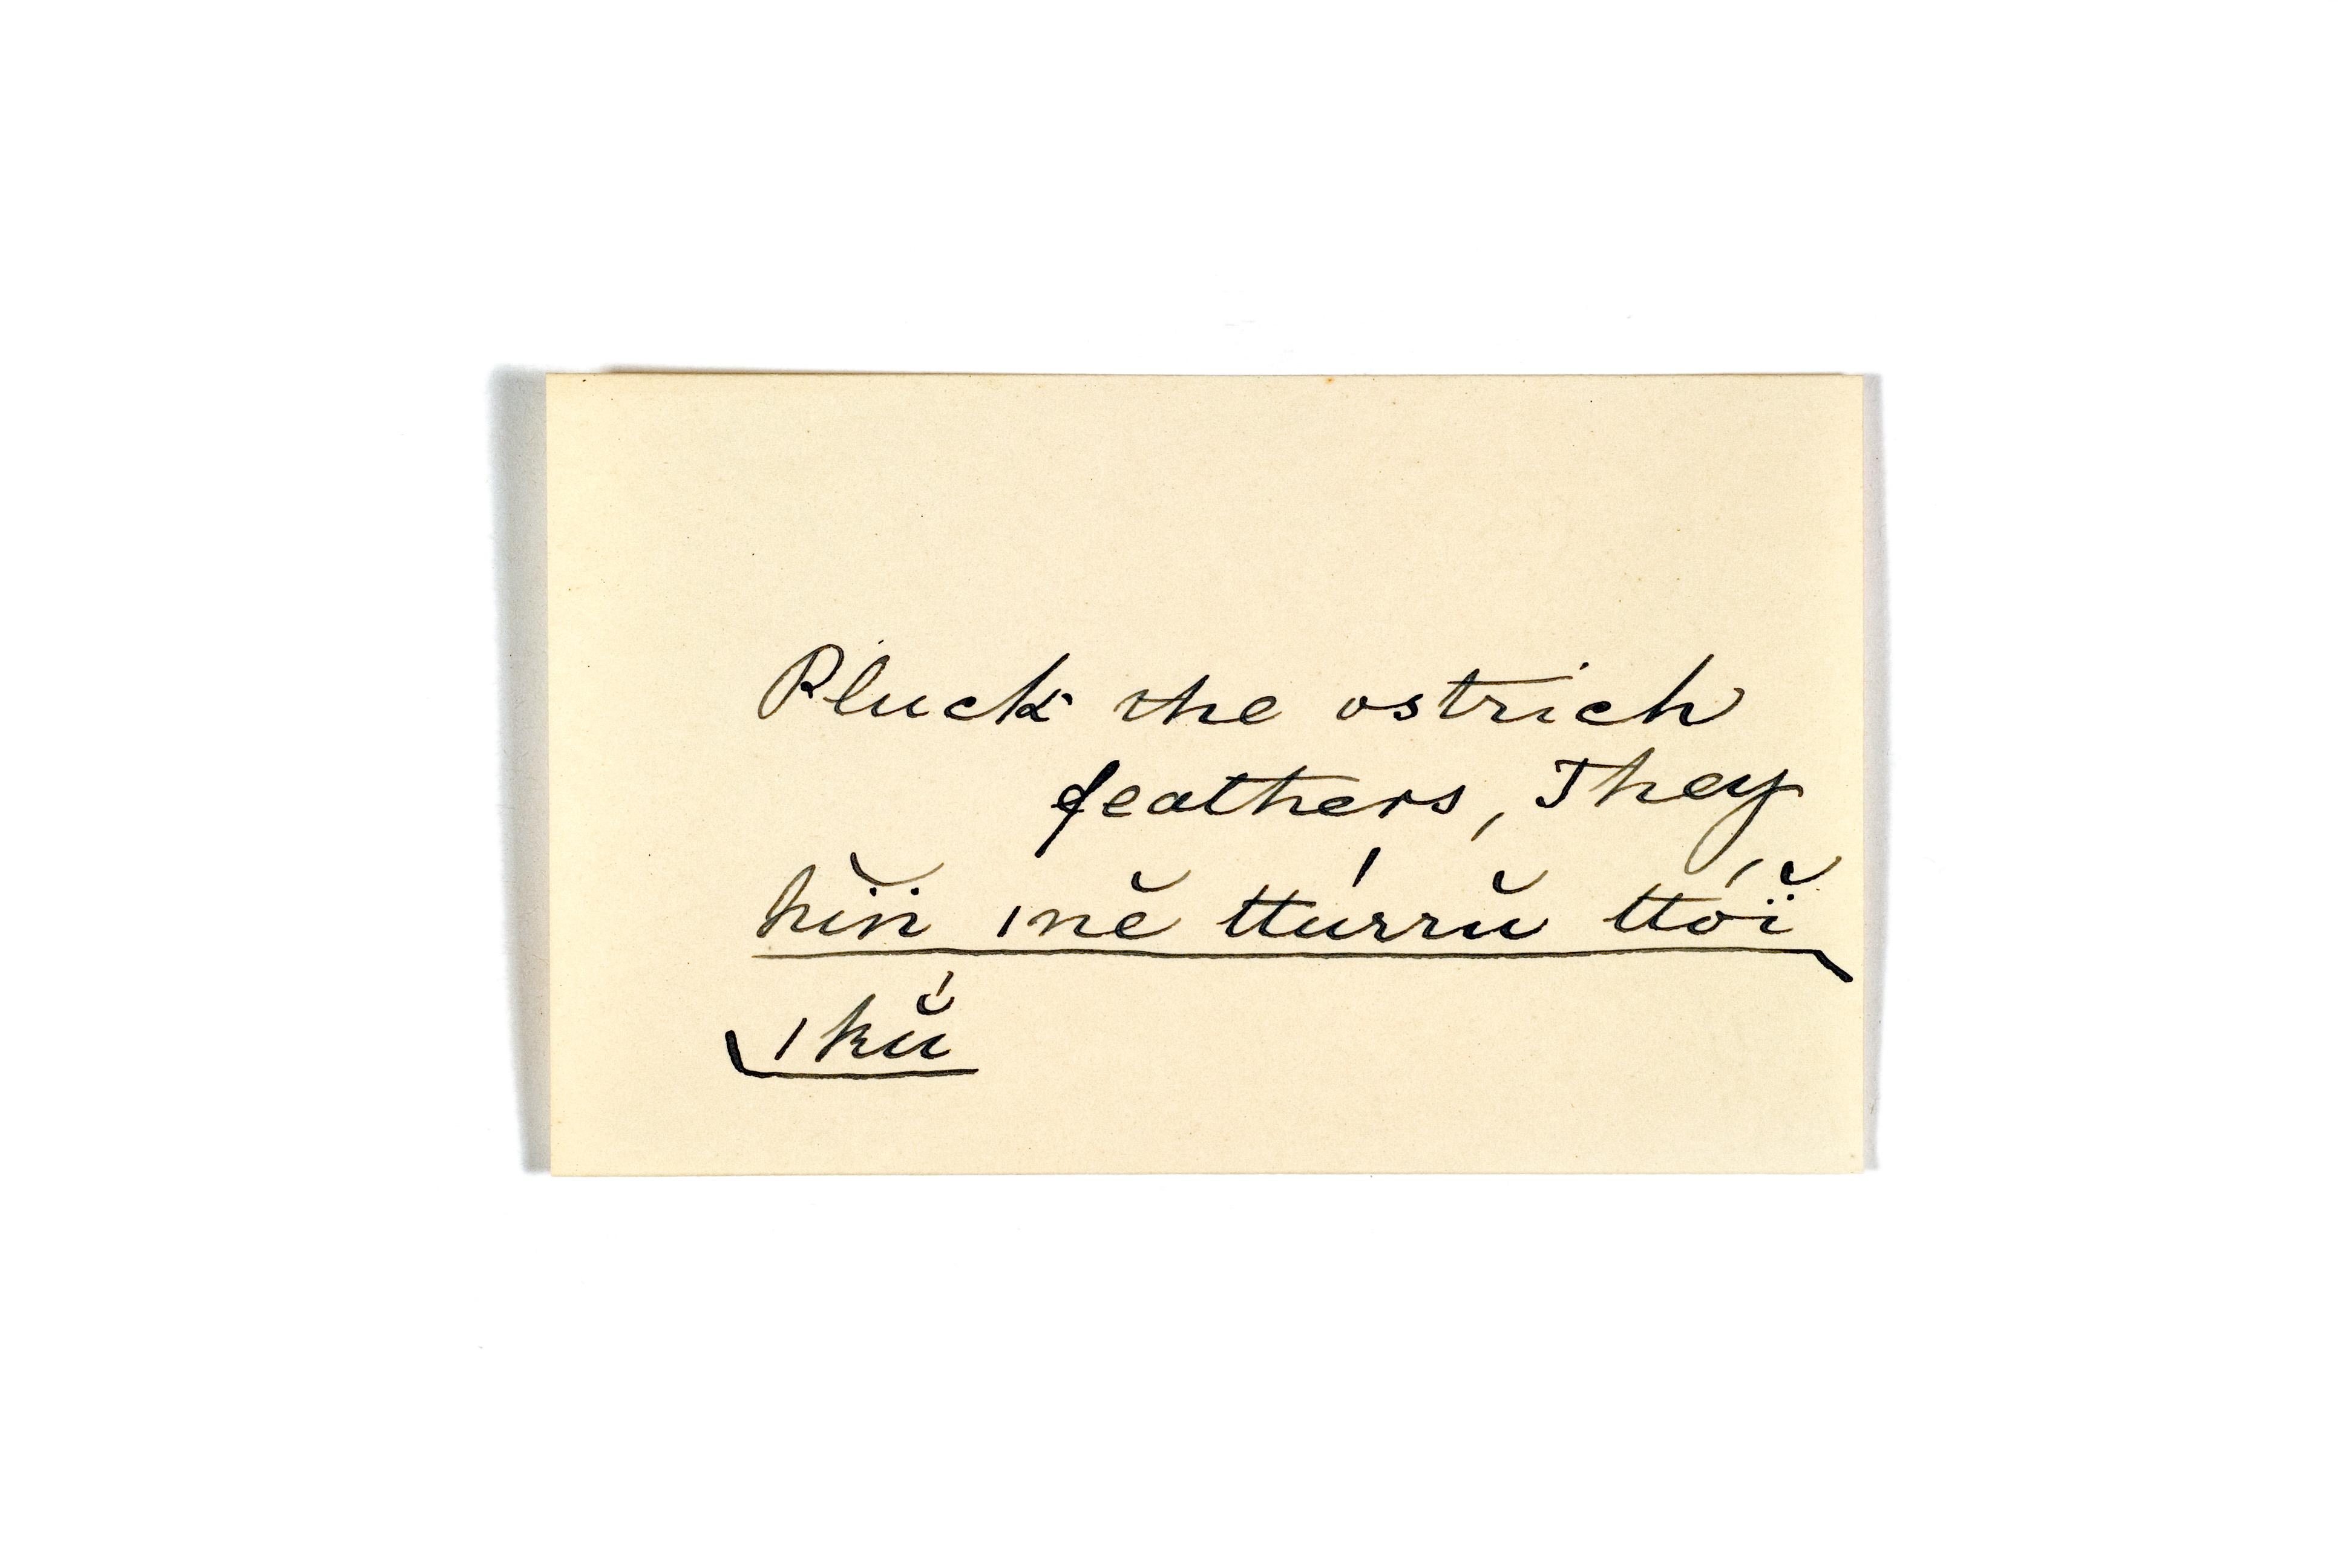 Pluck the ostrich
feathers, They
hĭn |nĕ ttúrrŭ ttóï̆
|kŭ́